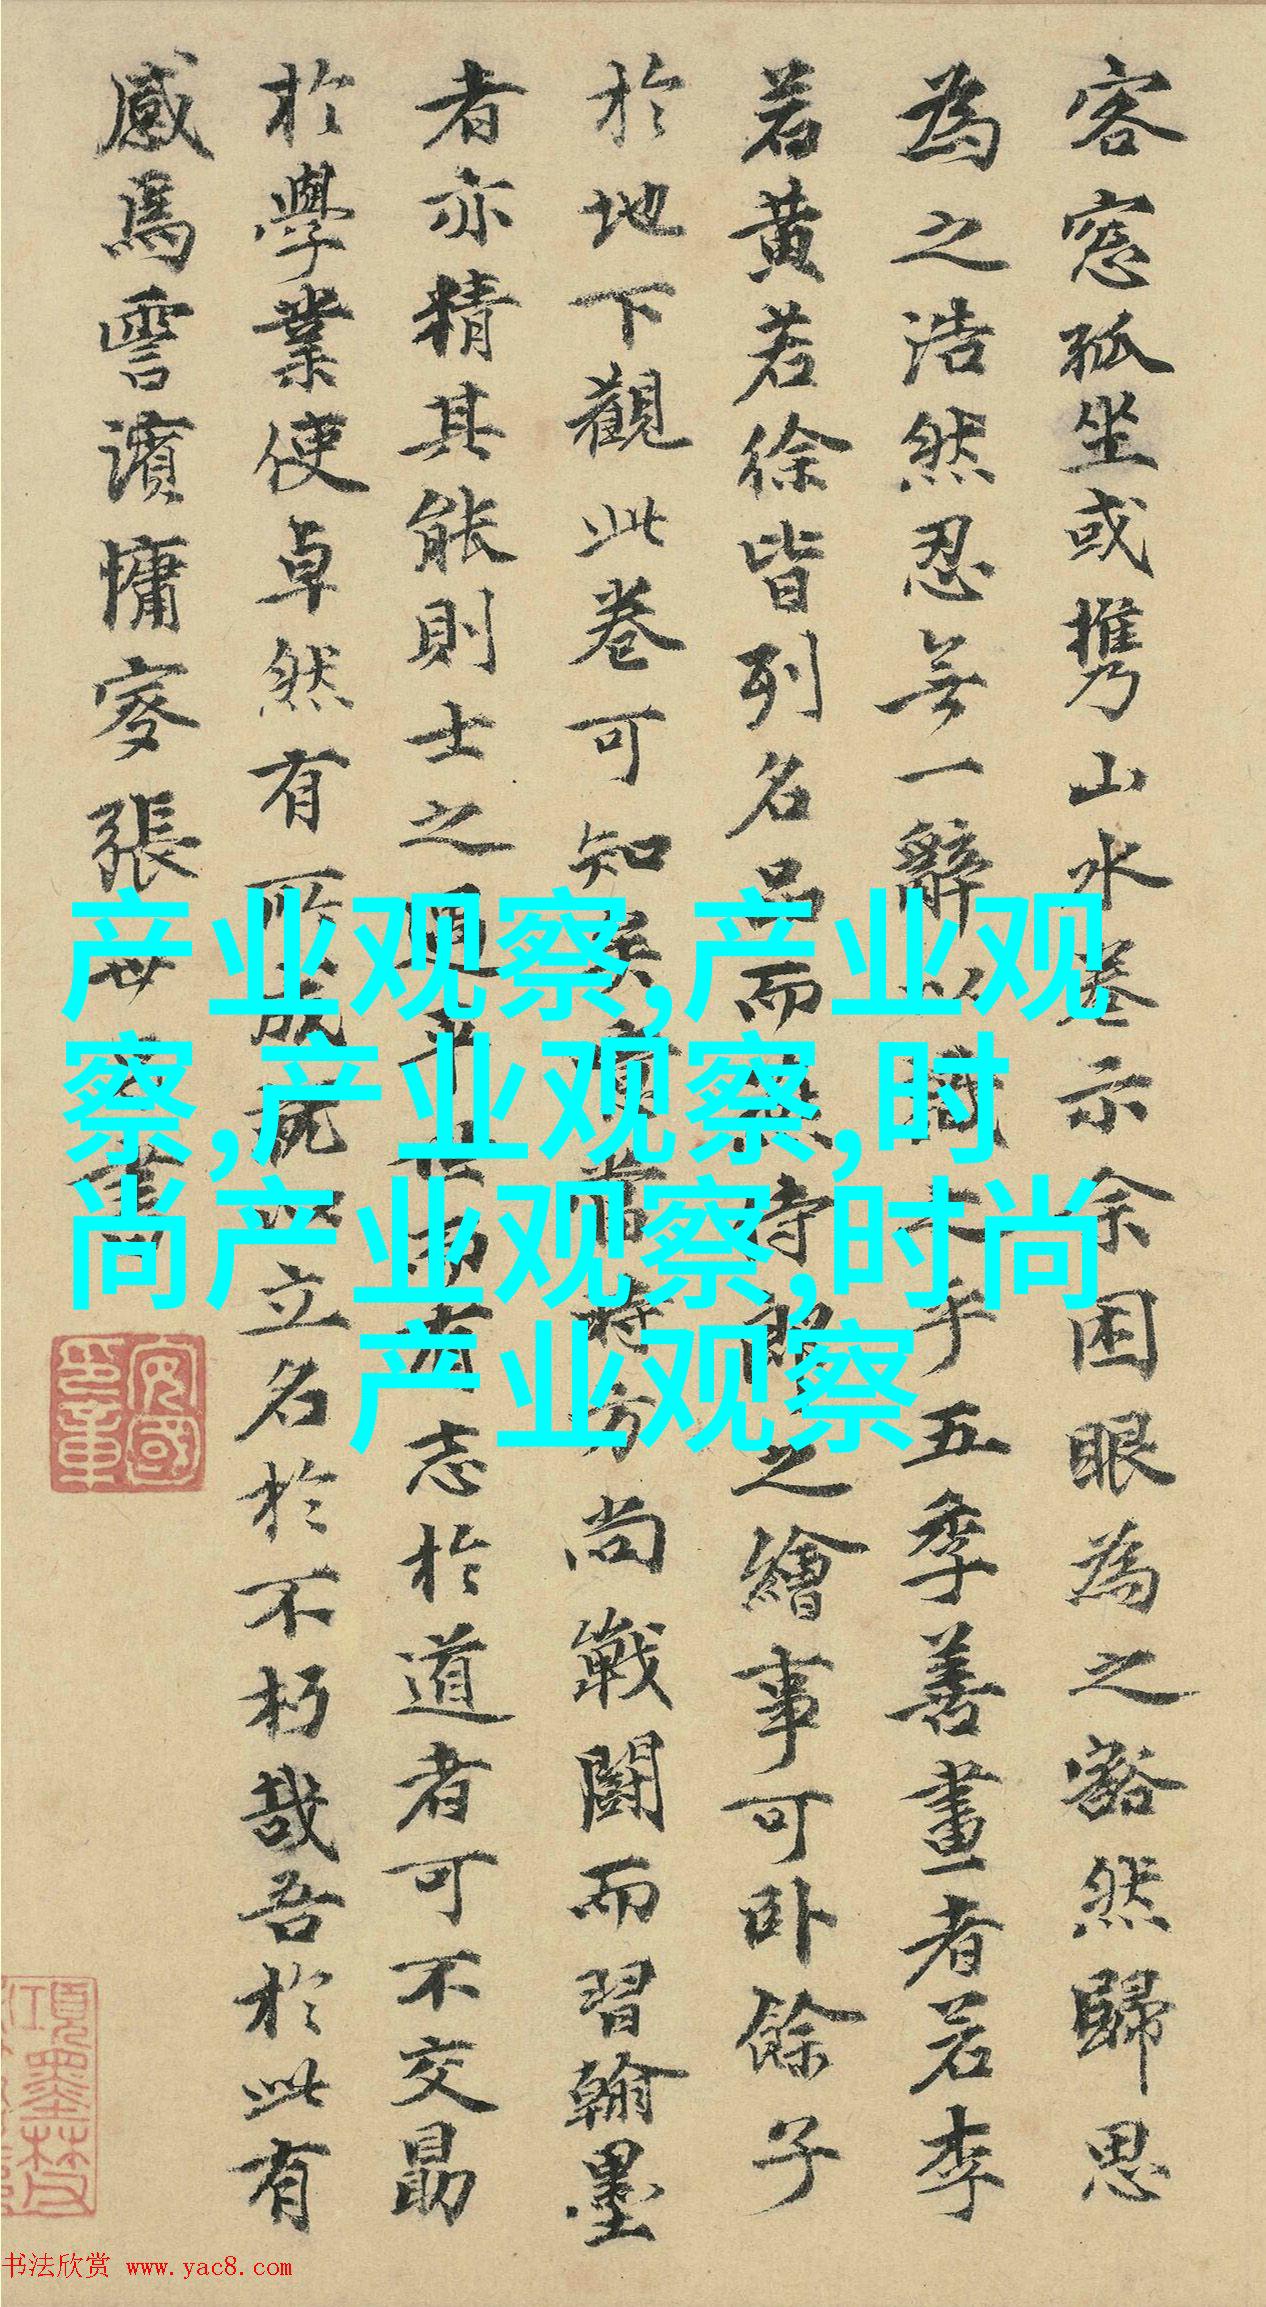 客窓孤坐或携山水卷示余困眼為之豁然歸思
為之浩然忍无一辭以識之乎五季善畫者若李
若黄若徐皆列名品而無侍郎之繪事可卧餘子
於地下觀此卷可知矣當時方尚戰鬭而習翰墨
者亦精其能則士之遇平世而有志於道者可不交勗
於學業使卓然有所成就以立名於不朽哉吾於此有
感焉霅濱慵叜張世書
产业观察,产业观
察,产业观察,时
尚产业观察,时尚
产业观察
书法欣赏 www.yac8.com